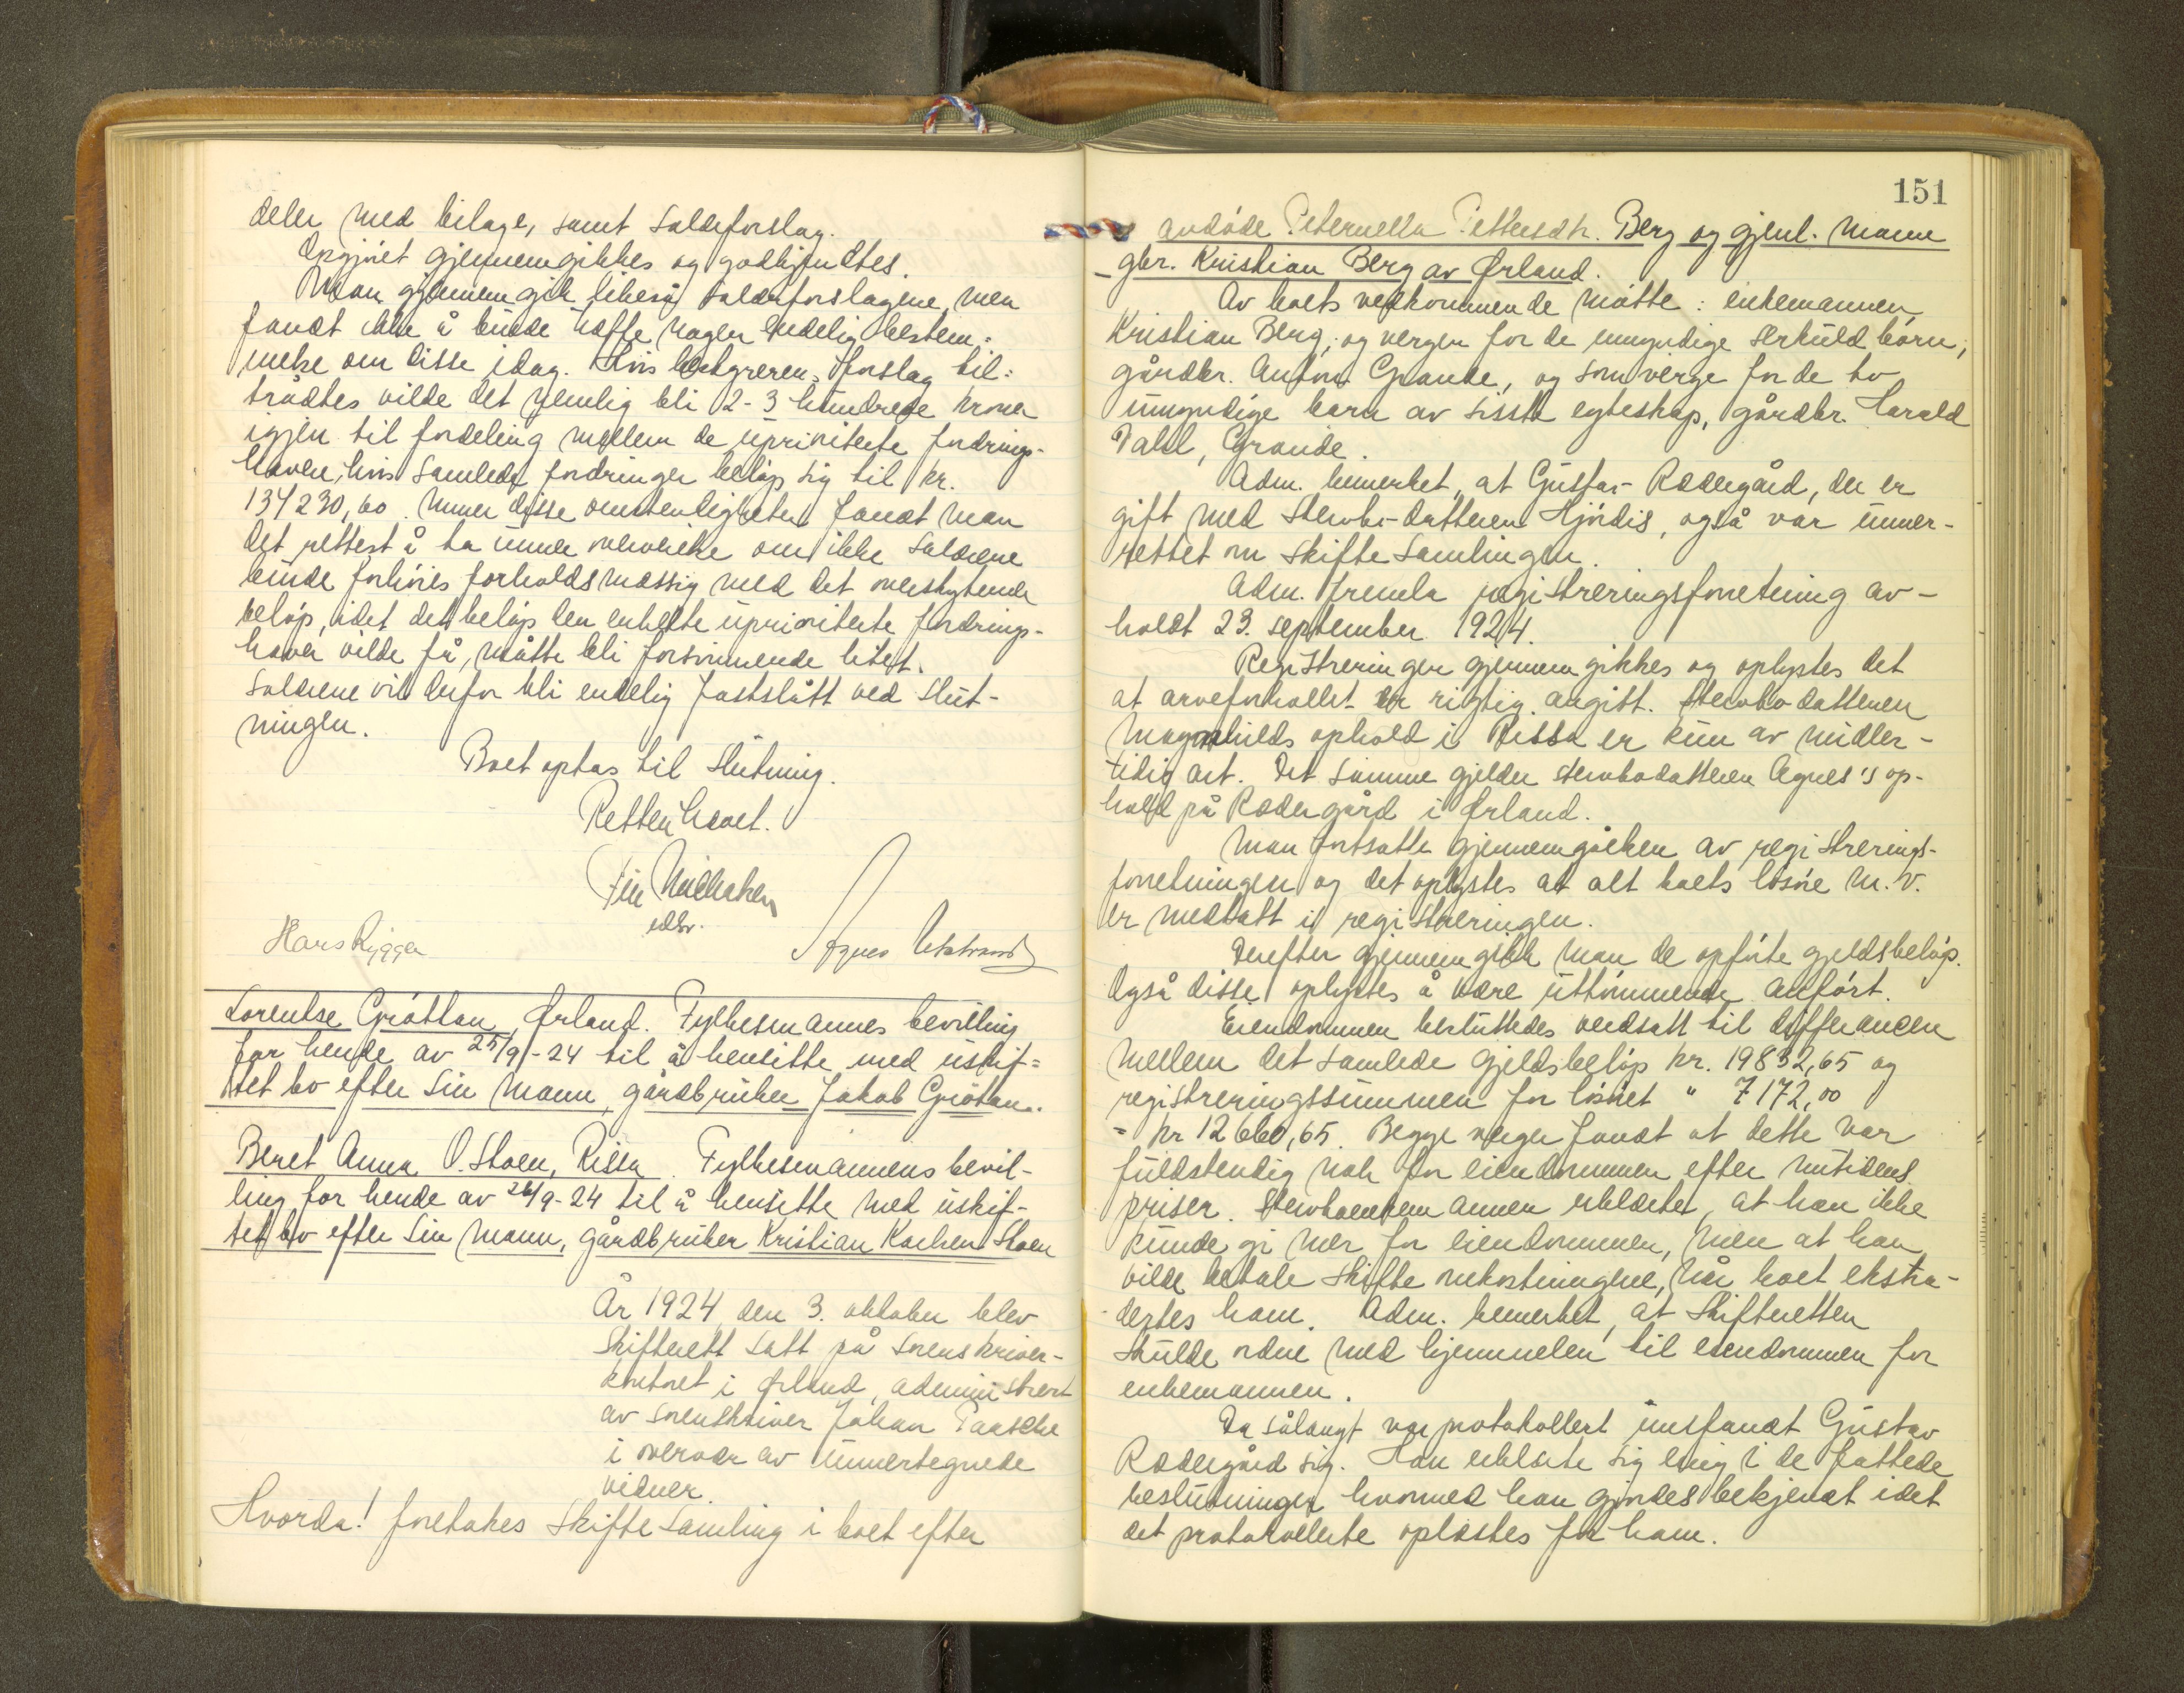 deler med bilage, samt salærforslag.
Opgjöret gjennemgikkes og godkjendtes.
Man gjennemgik likeså salærforslagene, men
fandt ikke å kunde træffe nogen endelig bestem=
melse om disse idag. Hvis bestyreren= forslag til=
trådtes vilde det nemlig bli 2-3 hundrede kroner
igjen til fordeling mellem de upriviterte fordrings-
havere, hvis samlede fordringer beløp sig til kr.
134230,60. Unner disse omstendigheter fandt man
det rettest å ta unner overveielse om ikke salærene
kunde forhöies forholdsmæssig med det overskytende
beløp, idet det beløp den enkelte uprioriterte fordrings-
haver vilde få, måtte bli forsvinnende litet.
Salærene vil derfor bli endelig fastslått ved slut-
ningen.
Boet optas til slutning.
Retten hævet.
edsv.
Hans Rygga
Agnes
Lorentse Gröttan, Ørland. Fylkesmannes bevilling
for hende av 25/9-24 til å hensitte med uskif=
tet bo efter sin mann, gårdbruker Jakob Grötan.
Beret Anna O. Stoen, Rissa. Fylkesmannens bevil-
ling for hende av 26/9-24 til å hensitte med uskif-
tet bo efter sin mann, gårdbruker Kristian Karlsen Stoen
År 1924 den 3. oktober blev
skifterett satt på sorenskriver-
kontoret i Ørland, administrert
av sorenskriver Johan Paasche
i overvær av unnertegnede
vidner.
Hvorda! foretokes skiftesamling i boet efter
151
avdöde Peternella Pettersdtr. Berg og gjenl. mann
gbr. Kristian Berg av Ørland.
Av boets vedkommende møtte: enkemannen
Kristian Berg, og vergen for de umyndige særkuldbörn,
gårdbr. Anton Grande, og som verge for de to
umyndige barn av siste egteskap, gårdbr. Harald
Dahl, Grande.
Adm. bemerket, at Gustav Rædergård, der er
gift med stervbo-datteren Hjördis, også var unner-
rettet om skiftesamlingen.
Adm. fremla registreringsforretning av-
holdt 23. september 1924.
Registreringen gjennemgikkes og oplystes det
at arveforholdet er rigtig angitt. Stervbodatteren
Magnhilds ophold i Rissa er kun av midler-
tidig art. Det samme gjelder stervbodatteren Agnes's op-
hold på Rædergård i Ørland.
Man fortsatte gjennemgåelsen av registrerings-
forretningen og det oplystes at alt boets løsöre m.v.
er medtatt i registreringen.
Derefter gjennemgikk man de opförte gjeldsbeløp.
Også disse oplystes å være uttömmende anfört.
Eiendommen besluttedes verdsatt til differansen
mellem det samlede gjeldsbeløp kr. 19832,65 og
registreringssummen for lösöret " 7172,00
= kr 12660,65. Begge verger fandt at dette var
fuldstendig nok for eiendommen efter nutidens
priser. Stervboenkemannen erklærte, at han ikke
kunde gi mer for eiendommen, men at han
vilde betale skifteomkostningene, når boet ekstra-
dertes ham. Adm. bemerket, at skifteretten
skulde ordne med hjemmelen til eiendommen for
enkemannen.
Da sålangt var protokollert innfandt Gustav
Rædergård sig. Han erklærte sig enig i de fattede
beslutninger hvormed han gjordes bekjendt idet
det protokollerte oplæstes for ham.